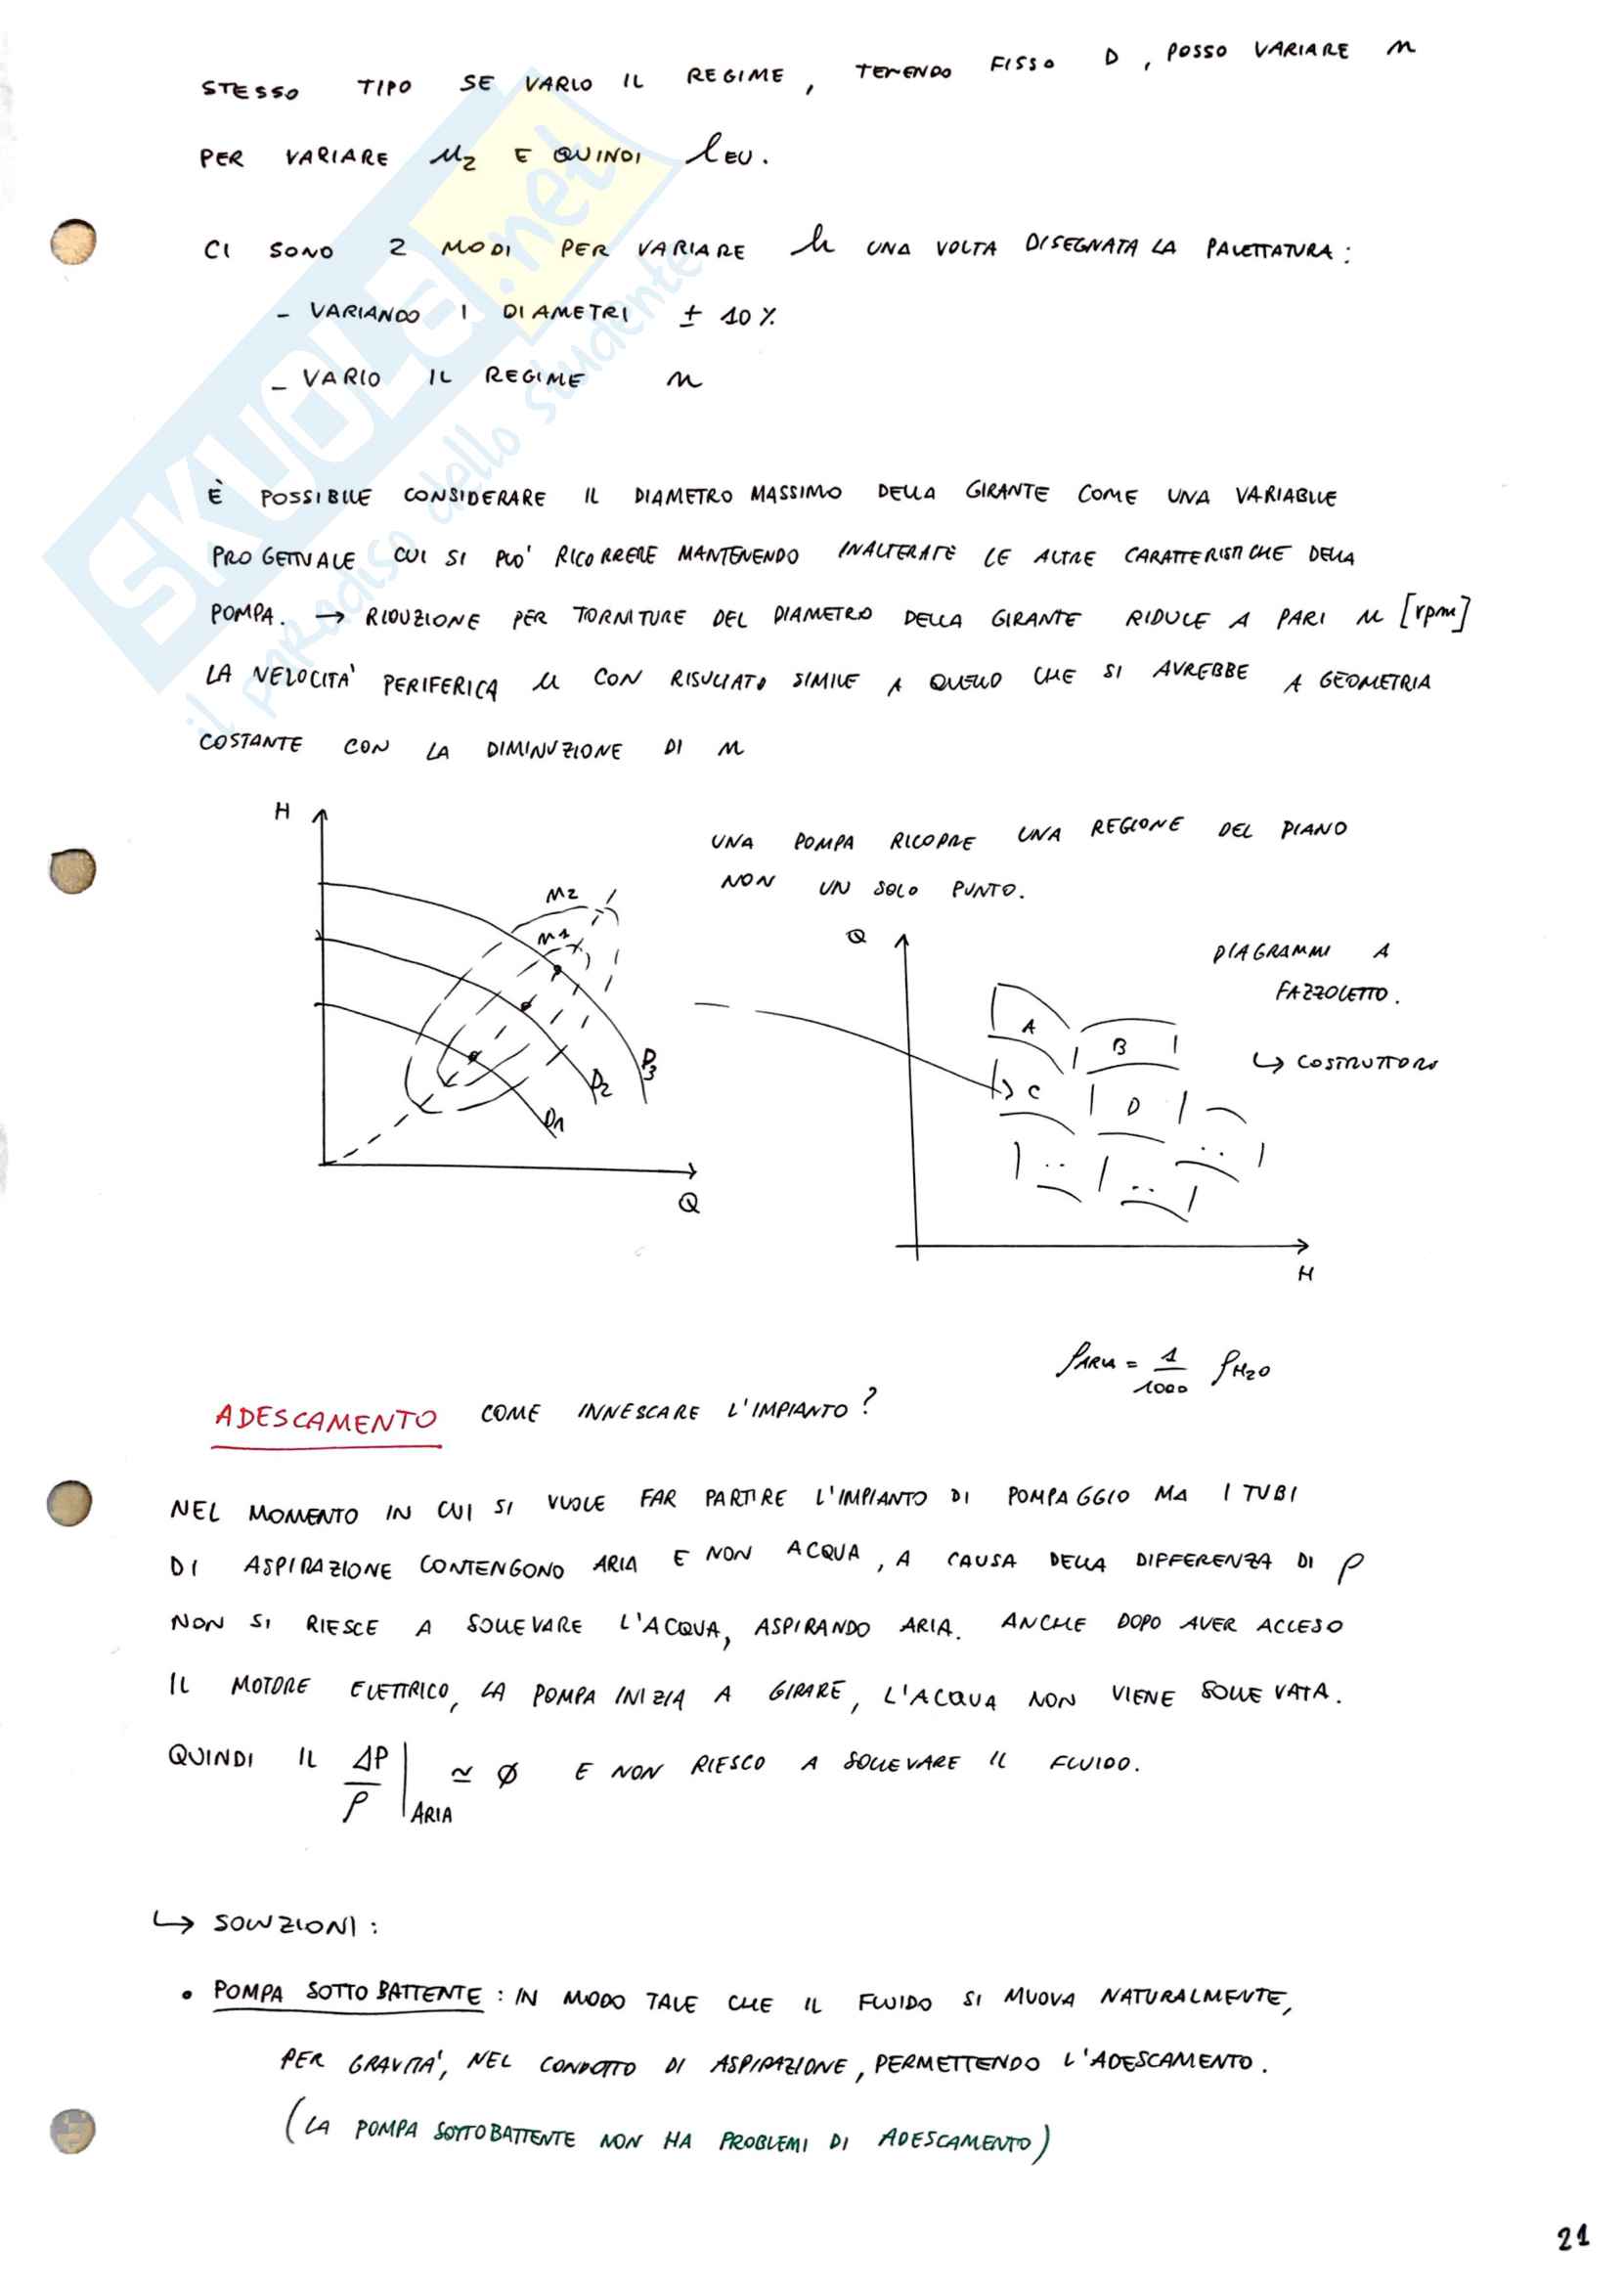 STESSO TIPO SE VARIO IL REGIME, TENENDO FISSO D, POSSO VARIARE n
PER VARIARE u2 E QUINDI lEU.
CI SONO 2 MODI PER VARIARE h UNA VOLTA DISEGNATA LA PALETTATURA:
- VARIANDO I DIAMETRI ± 10%
- VARIO IL REGIME n
È POSSIBILE CONSIDERARE IL DIAMETRO MASSIMO DELLA GIRANTE COME UNA VARIABILE
PROGETTUALE CUI SI PUO' RICORRERE MANTENENDO INALTERATE LE ALTRE CARATTERISTICHE DELLA
POMPA. → RIDUZIONE PER TORNITURE DEL DIAMETRO DELLA GIRANTE RIDUCE A PARI n [rpm]
LA VELOCITA' PERIFERICA u CON RISULTATO SIMILE A QUELLO CHE SI AVREBBE A GEOMETRIA
COSTANTE CON LA DIMINUZIONE DI n
H
UNA POMPA RICOPRE UNA REGIONE DEL PIANO
NON UN SOLO PUNTO.
M2
M1
D3
D2
D1
Q
Q
DIAGRAMMI A
FAZZOLETTO.
↳ COSTRUTTORI
A
B
C
D
H
ρARIA = 1/1000 ρH2O
ADESCAMENTO COME INNESCARE L'IMPIANTO?
NEL MOMENTO IN CUI SI VUOLE FAR PARTIRE L'IMPIANTO DI POMPAGGIO MA I TUBI
DI ASPIRAZIONE CONTENGONO ARIA E NON ACQUA, A CAUSA DELLA DIFFERENZA DI ρ
NON SI RIESCE A SOLLEVARE L'ACQUA, ASPIRANDO ARIA. ANCHE DOPO AVER ACCESO
IL MOTORE ELETTRICO, LA POMPA INIZIA A GIRARE, L'ACQUA NON VIENE SOLLEVATA.
QUINDI IL ΔP/ρ|ARIA ≃ ∅ E NON RIESCO A SOLLEVARE IL FLUIDO.
↳ SOLUZIONI:
• POMPA SOTTOBATTENTE: IN MODO TALE CHE IL FLUIDO SI MUOVA NATURALMENTE,
PER GRAVITA', NEL CONDOTTO DI ASPIRAZIONE, PERMETTENDO L'ADESCAMENTO.
(LA POMPA SOTTOBATTENTE NON HA PROBLEMI DI ADESCAMENTO)
21
SKUOLA.net
il paradiso dello studente